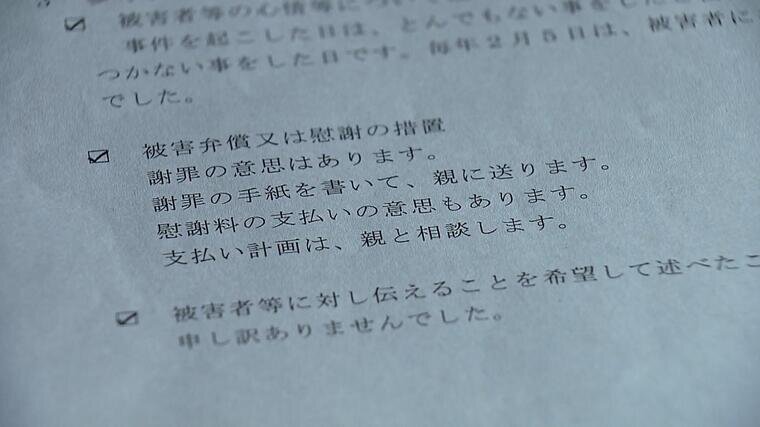 ☑ 被害者等の心情等につい
事件を起こした日は、とんでもない事をした
つかない事をした日です。毎年2月5日は、被害者に
でした。
☑ 被害弁償又は慰謝の措置
謝罪の意思はあります。
謝罪の手紙を書いて、親に送ります。
慰謝料の支払いの意思もあります。
支払い計画は、親と相談します。
☑ 被害者等に対し伝えることを希望して述べたこ
申し訳ありませんでした。